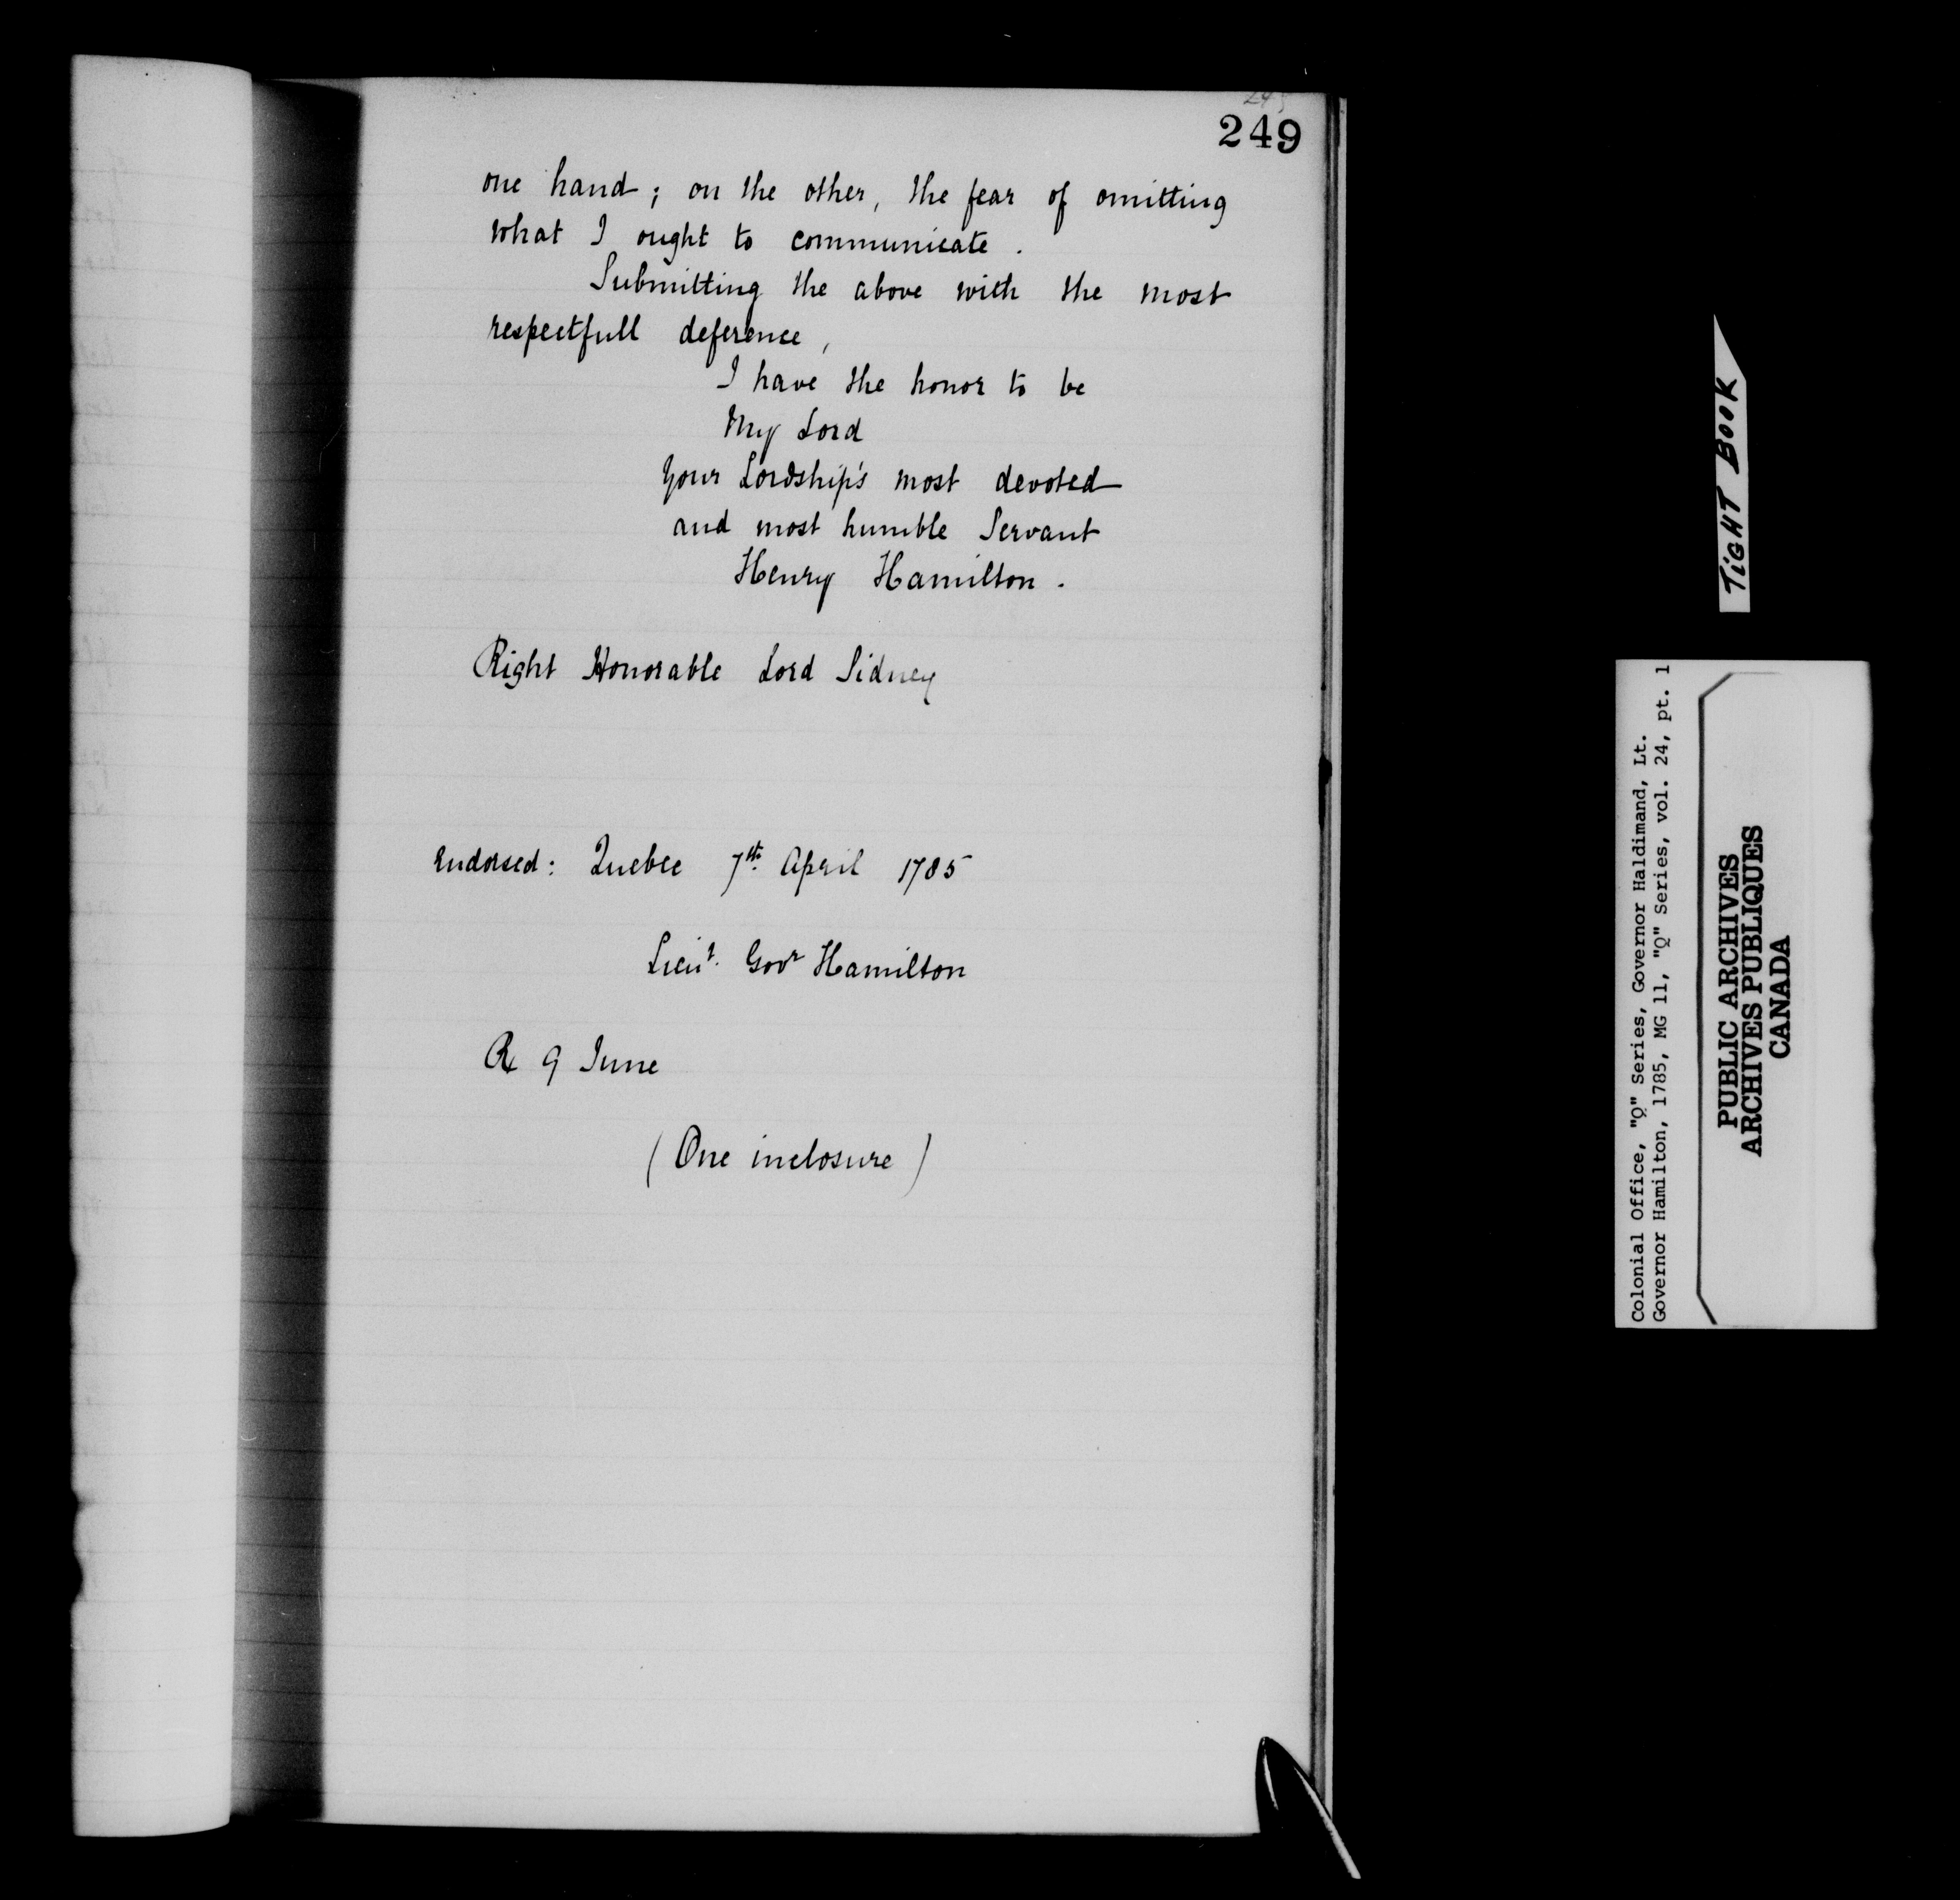 249
one hand; on the other, the fear of omitting
what I ought to communicate.
Submitting the above with the most
respectfull deference,
I have the honor to be
My Lord
Your Lordship's most devoted
and most humble Servant
Henry Hamilton.
Right Honorable Lord Sidney
Endorsed: Quebec 7th April 1785
Lieut. Govr Hamilton
R 9 June
(One inclosure)
TIGHT BOOK
Colonial Office, "Q" Series, Governor Haldimand, Lt.
Governor Hamilton, 1785, MG 11, "Q" Series, vol. 24, pt. 1
PUBLIC ARCHIVES
ARCHIVES PUBLIQUES
CANADA